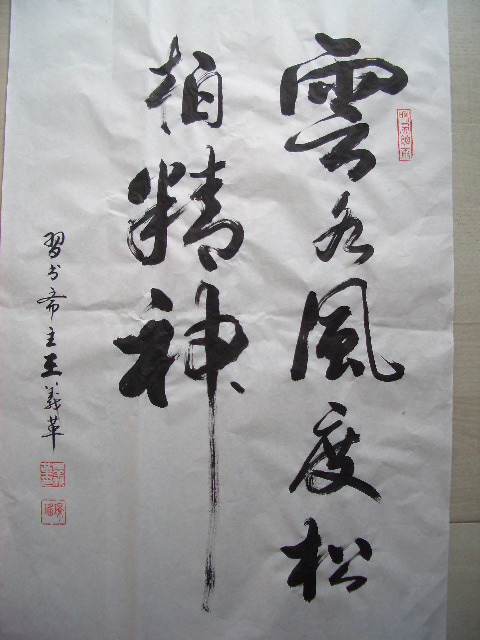 雲水風度松
柏精神
習书斋主王義革